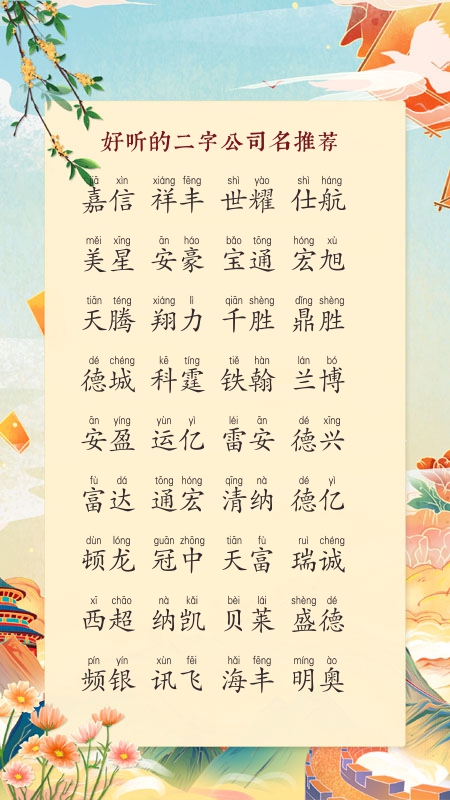 好听的二字公司名推荐
jiā xìn xiáng fēng shì yào shì háng
嘉信 祥丰 世耀 仕航
měi xīng ān háo bǎo tōng hóng xù
美星 安豪 宝通 宏旭
tiān téng xiáng lì qiān shèng dǐng shèng
天腾 翔力 千胜 鼎胜
dé chéng kē tíng tiě hàn lán bó
德城 科霆 铁翰 兰博
ān yíng yùn yì léi ān dé xīng
安盈 运亿 雷安 德兴
fù dá tōng hóng qīng nà dé yì
富达 通宏 清纳 德亿
dùn lóng guān zhōng tiān fù ruì chéng
顿龙 冠中 天富 瑞诚
xī chāo nà kǎi bèi lái shèng dé
西超 纳凯 贝莱 盛德
pín yín xùn fēi hǎi fēng míng ào
频银 讯飞 海丰 明奥